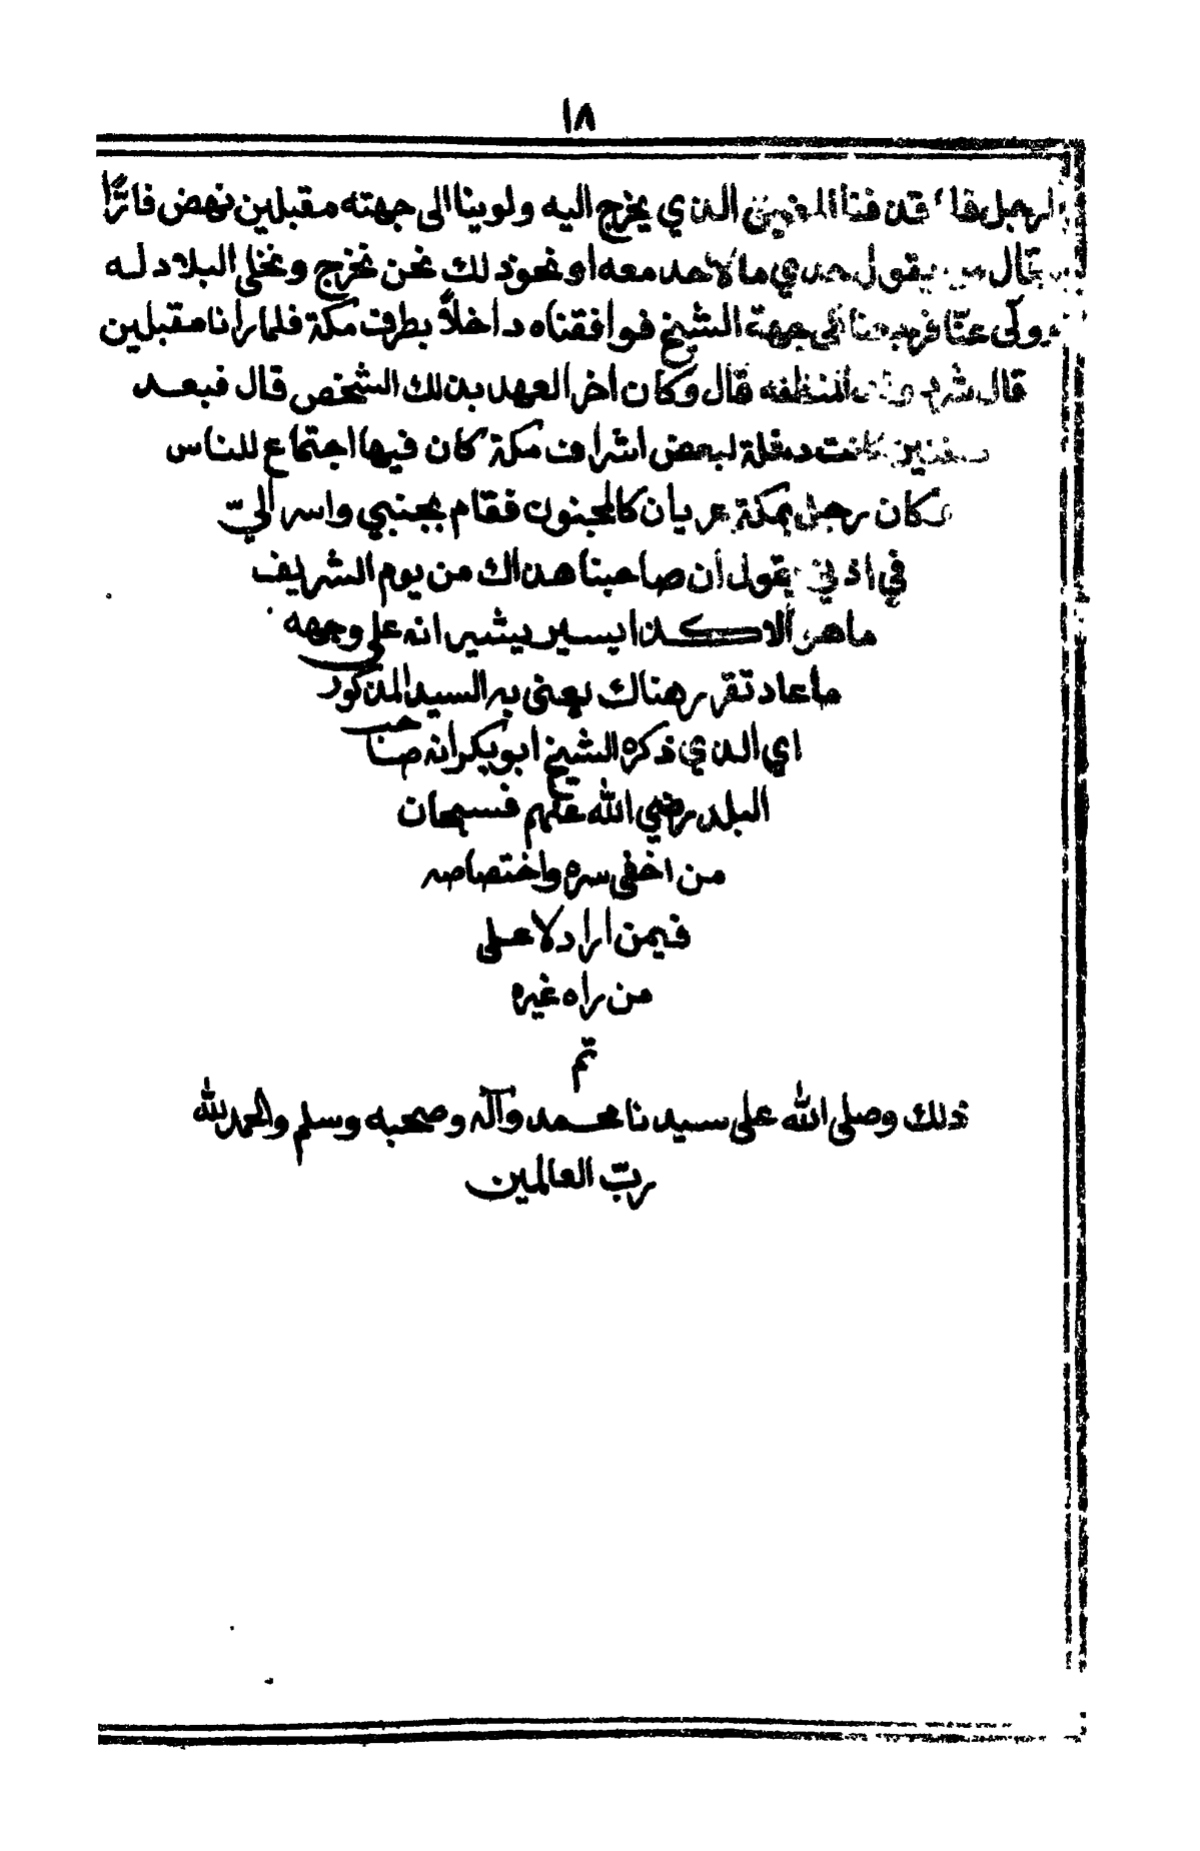 ١٨
الرجل قدفتنا الذي يخرج اليه ولوينا الى جهته مقبلين نهض فارًّا
يقول ما لاحد معه أو نحو ذلك نحن نخرج ونخلي البلاد له
وولّى عنّا فرجعنا الى جهة الشيخ فوافقناه داخلاً بطرف مكة فلما رانا مقبلين
قال المنظفه قال وكان أخر العهد بذلك الشخص قال فبعد
سنين كانت دخلة لبعض اشراف مكة كان فيها اجتماع للناس
وكان رجل بمكة عريان كالمجنون فقام بجنبي واسر اليّ
في اذني يقول أن صاحبنا هذاك من يوم الشريف
ما هو ألا كذا يسير يشير انه على وجهه
ما عاد تقرر هناك يعنى به السيد المذكور
اي الذي ذكره الشيخ ابوبكر أنه صاحب
البلد رضي الله عنهم فسبحان
من اخفى سره واختصاصه
فيمن اراد لا على
من راه غيره
تم
ذلك وصلى الله على سيدنا محمد وآله وصحبه وسلم والحمد لله
ربّ العالمين